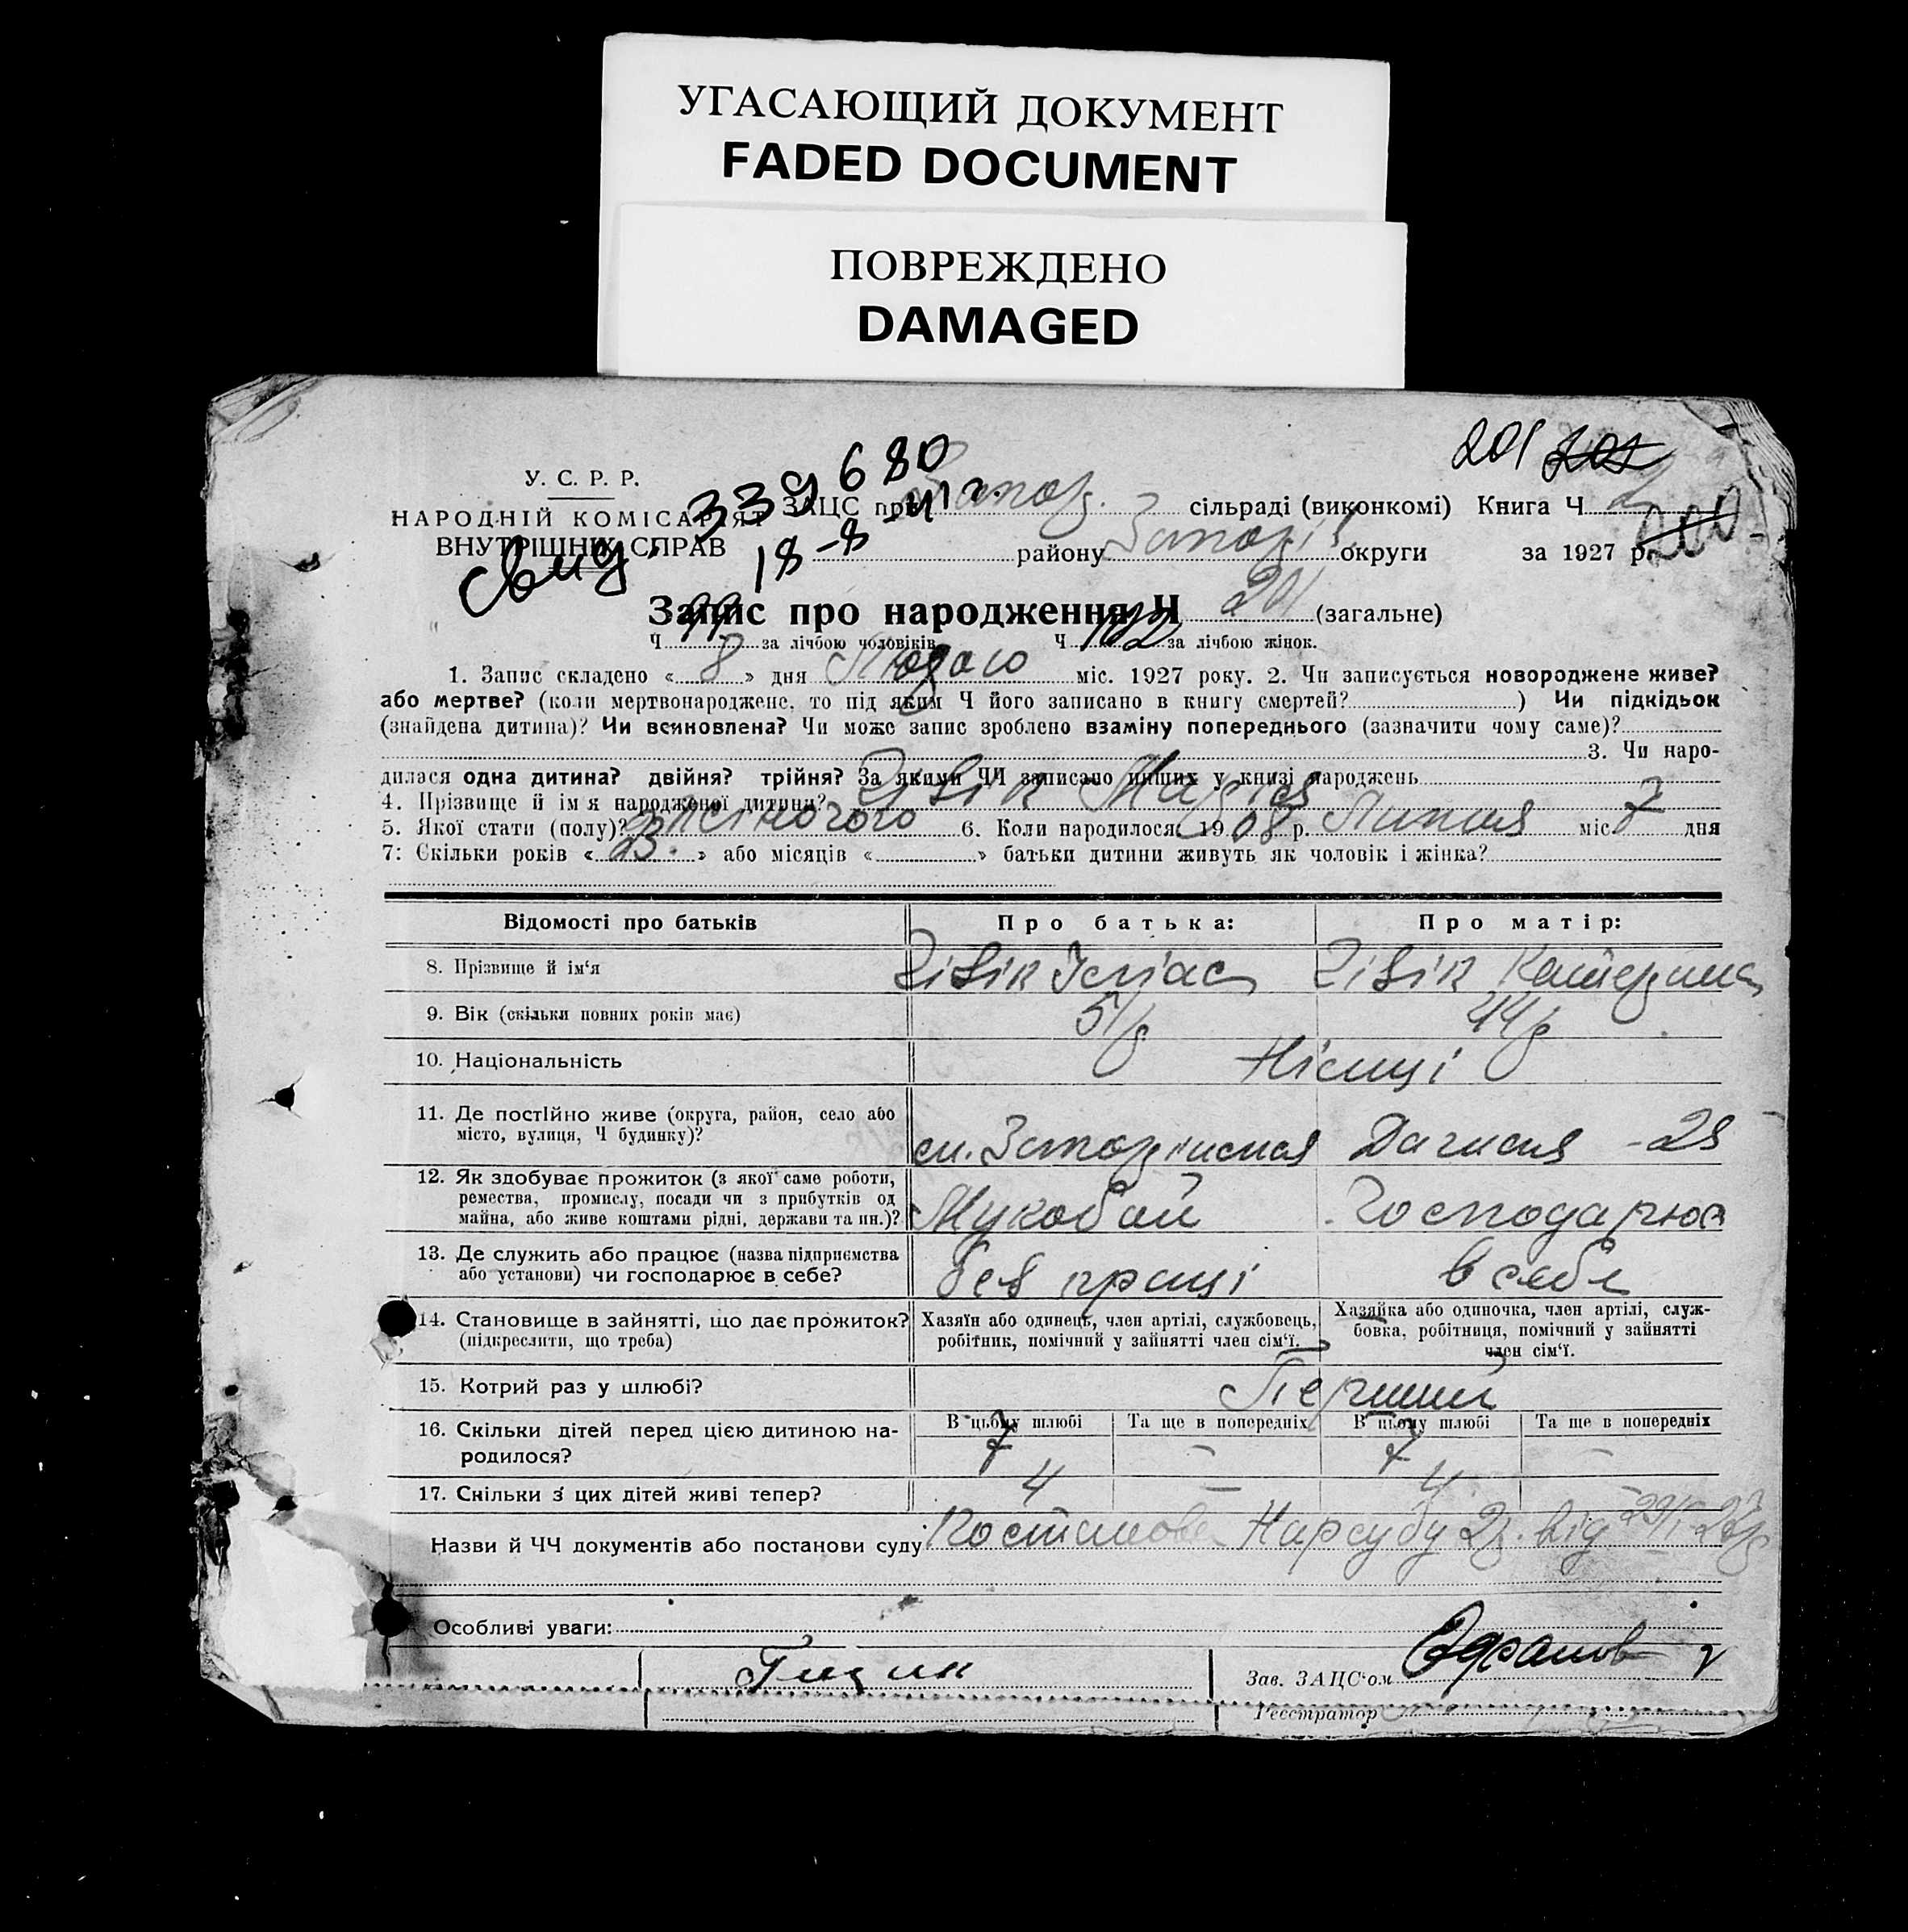 УГАСАЮЩИЙ ДОКУМЕНТ
FADED DOCUMENT
ПОВРЕЖДЕНО
DAMAGED
201 201
339680
У. С. Р. Р.
НАРОДНІЙ КОМІСАРІЯТ
ВНУТРІШНІХ СПРАВ
Свид.
18-8-41г.
ЗАЦС при Запоз. сільраді (виконкомі) Книга Ч 2
району Запоріз. округи за 1927 р. 200
Запис про народження Ч 201 (загальне)
Ч 99 за лічбою чоловіків Ч 102 за лічбою жінок.
1. Запис складено « 8 » дня Лютого міс. 1927 року. 2. Чи записується новороджене живе?
або мертве? (коли мертвонароджене, то під яким Ч його записано в книгу смертей? ) Чи підкідьок
(знайдена дитина)? Чи всиновлена? Чи може запис зроблено взаміну попереднього (зазначити чому саме)?
3. Чи наро-
дилася одна дитина? двійня? трійня? За якими ЧЧ записано инших у книзі народжень
4. Прізвище й ім'я народженої дитини? Марія
5. Якої стати (полу)? жіночого 6. Коли народилося: 1908 р. Липня міс. 7 дня
7: Скільки років « 23. » або місяців « » батьки дитини живуть як чоловік і жінка?
Відомості про батьків Про батька: Про матір:
8. Прізвище й ім'я Катерина
9. Вік (скільки повних років має) 51р 44р
10. Національність Німці
11. Де постійно живе (округа, район, село або
місто, вулиця, Ч будинку)?
12. Як здобуває прожиток (з якої саме роботи,
ремества, промислу, посади чи з прибутків од
майна, або живе коштами рідні, держави та ин.)? Господарює
13. Де служить або працює (назва підприємства
або установи) чи господарює в себе? без праці в себе
14. Становище в зайнятті, що дає прожиток?
(підкреслити, що треба)
Хазяїн або одинець, член артілі, службовець,
робітник, помічний у зайнятті член сім'ї.
Хазяйка або одиночка, член артілі, служ-
бовка, робітниця, помічний у зайнятті
член сім'ї.
15. Котрий раз у шлюбі? Перший
В цьому шлюбі Та ще в попередніх В цьому шлюбі Та ще в попередніх
16. Скільки дітей перед цією дитиною на-
родилося? 7 – 7 –
17. Скільки з цих дітей живі тепер? 4 – 4 –
Назви й ЧЧ документів або постанови суду Постанова Нарсуду 2р. від 29/I 27р
Особливі уваги:
Зав. ЗАЦС'ом
Реєстратор